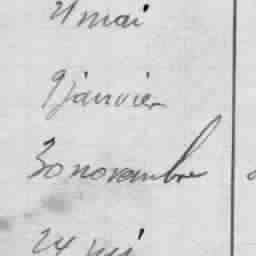 21 mai
9 janvier
30 novembre
24